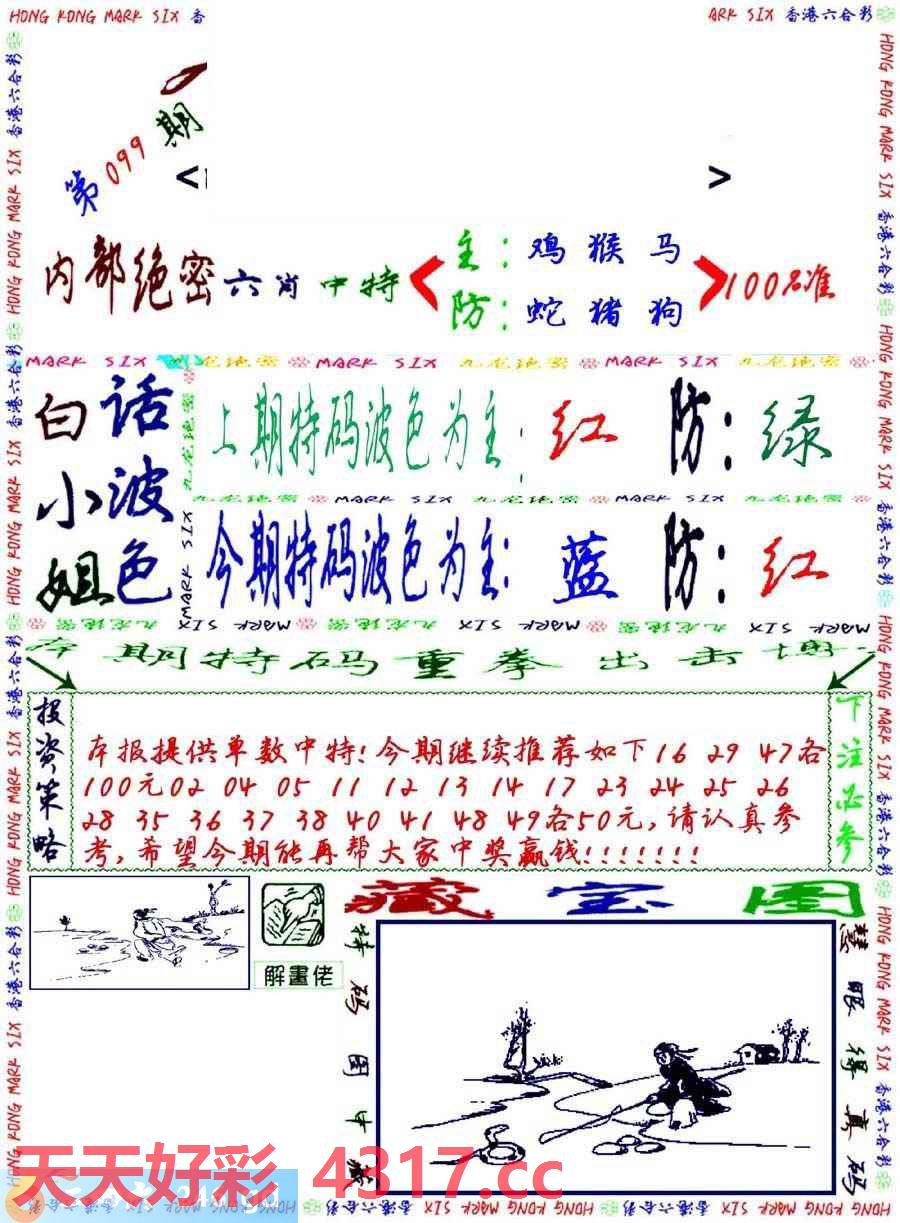 HONG KONG MARK SIX 香
ARK SIX 香港六合彩
第099期
< >
内部绝密六肖中特
主：鸡猴马
防：蛇猪狗
100%准
MARK SIX 九龙绝密 MARK SIX 九龙绝密 MARK SIX 九龙绝密
白话
小波
姐色
上期特码波色为主：红 防：绿
九龙绝密 MARK SIX 九龙绝密 MARK SIX
今期特码波色为主：蓝 防：红
MARK SIX 九龙绝密 MARK SIX 九龙绝密 MARK SIX
本期特码重拳出击
投资策略
本报提供单数中特！今期继续推荐如下16 29 47各
100元02 04 05 11 12 13 14 17 23 24 25 26
28 35 36 37 38 40 41 48 49各50元,请认真参
考,希望今期能再帮大家中奖赢钱!!!!!!!
下注必参
解畫佬
藏宝图
特码图中藏
慧眼得真码
天天好彩 4317.cc
HONG KONG MARK SIX 香港六合彩